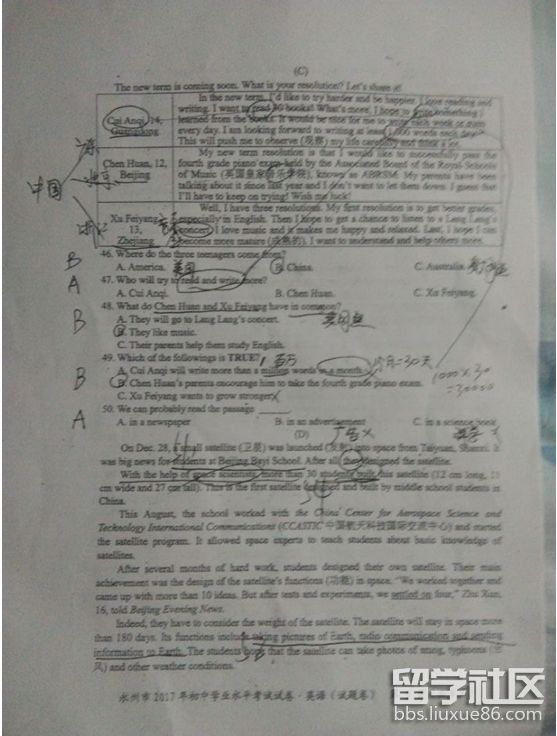 (C)
The new term is coming soon. What is your resolution? Let's share it!
In the new term, I'd like to try harder and be happier. I love reading and
writing. I want to read 30 books! What's more, I hope to write something I
Cui Anqi, 14, learned from the books. It would be nice for me to write each week or even
Guangdong every day. I am looking forward to writing at least 1,000 words each day!
This will push me to observe (观察) my life carefully and think a lot.
My new term resolution is that I would like to successfully pass the
Chen Huan, 12, fourth grade piano exam held by the Associated Board of the Royal Schools
Beijing of Music (英国皇家音乐学院), known as ABRSM. My parents have been
talking about it since last year and I don't want to let them down. I guess that
I'll have to keep on trying! Wish me luck!
Well, I have three resolutions. My first resolution is to get better grades,
Xu Feiyang, especially in English. Then I hope to get a chance to listen to a Lang Lang's
13, concert. I love music and it makes me happy and relaxed. Last, I hope I can
Zhejiang become more mature (成熟的). I want to understand and help others more.
中国
B
46. Where do the three teenagers come from?
A. America. 美国 B. China. C. Australia.
A
47. Who will try to read and write more?
A. Cui Anqi. B. Chen Huan. C. Xu Feiyang.
B
48. What do Chen Huan and Xu Feiyang have in common?
A. They will go to Lang Lang's concert.
B. They like music.
C. Their parents help them study English.
49. Which of the followings is TRUE?
B
A. Cui Anqi will write more than a million words in a month.
=30天
1000×30
=30000
B. Chen Huan's parents encourage him to take the fourth grade piano exam.
C. Xu Feiyang wants to grow stronger.
A
50. We can probably read the passage ______
A. in a newspaper B. in an advertisement C. in a science book
广告×
(D)
On Dec. 28, a small satellite (卫星) was launched (发射) into space from Taiyuan, Shanxi. It
was big news for students at Beijing Bayi School. After all, they designed the satellite.
With the help of space scientists, more than 30 students built this satellite (12 cm long, 11
cm wide and 27 cm tall). This is the first satellite designed and built by middle school students in
China.
This August, the school worked with the China Center for Aerospace Science and
Technology International Communications (CCASTIC 中国航天科技国际交流中心) and started
the satellite program. It allowed space experts to teach students about basic knowledge of
satellites.
After several months of hard work, students designed their own satellite. Their main
achievement was the design of the satellite's functions (功能) in space. "We worked together and
came up with more than 10 ideas. But after tests and experiments, we settled on four," Zhu
16, told Beijing Evening News.
Indeed, they have to consider the weight of the satellite. The satellite will stay in space more
than 180 days. Its functions include taking pictures of Earth, radio communication and sending
information to Earth. The students hope that the satellite can take photos of smog, typhoons (台
风) and other weather conditions.
永州市2017年初中学业水平考试试卷·英语（试题卷）
留学社区
bbs.liuxue86.com